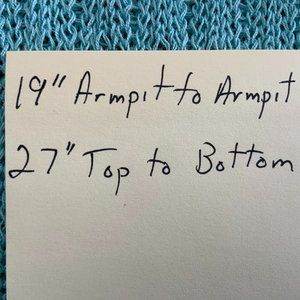 19" Armpit to Armpit
27" Top to Bottom